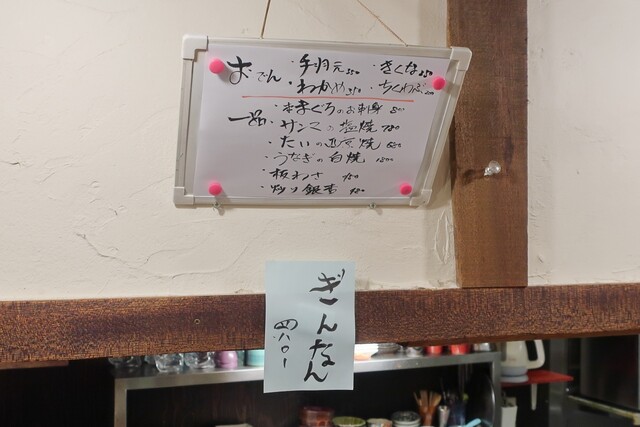 おでん ・手羽元 350 ・きくな 250
・わかめ 350 ・ちくわぶ 200
一品 ・本まぐろのお刺身
・サンマの塩焼 780
・たいの西京焼 680
・うなぎの白焼 1800
・板わさ 450
・炒り銀杏 480
ぎんなん
四八〇ー